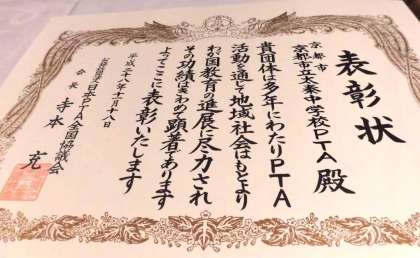 表彰状
京都市
京都市立文泰中学校PTA殿
貴団体は多年にわたりPTA
活動を通して地域社会はもとより
わが国教育の進展に尽力され
その功績はきわめて顕著であります
よってここに表彰いたします
平成二十八年十一月十八日
公益社団法人日本PTA全国協議会
会長 寺本 充